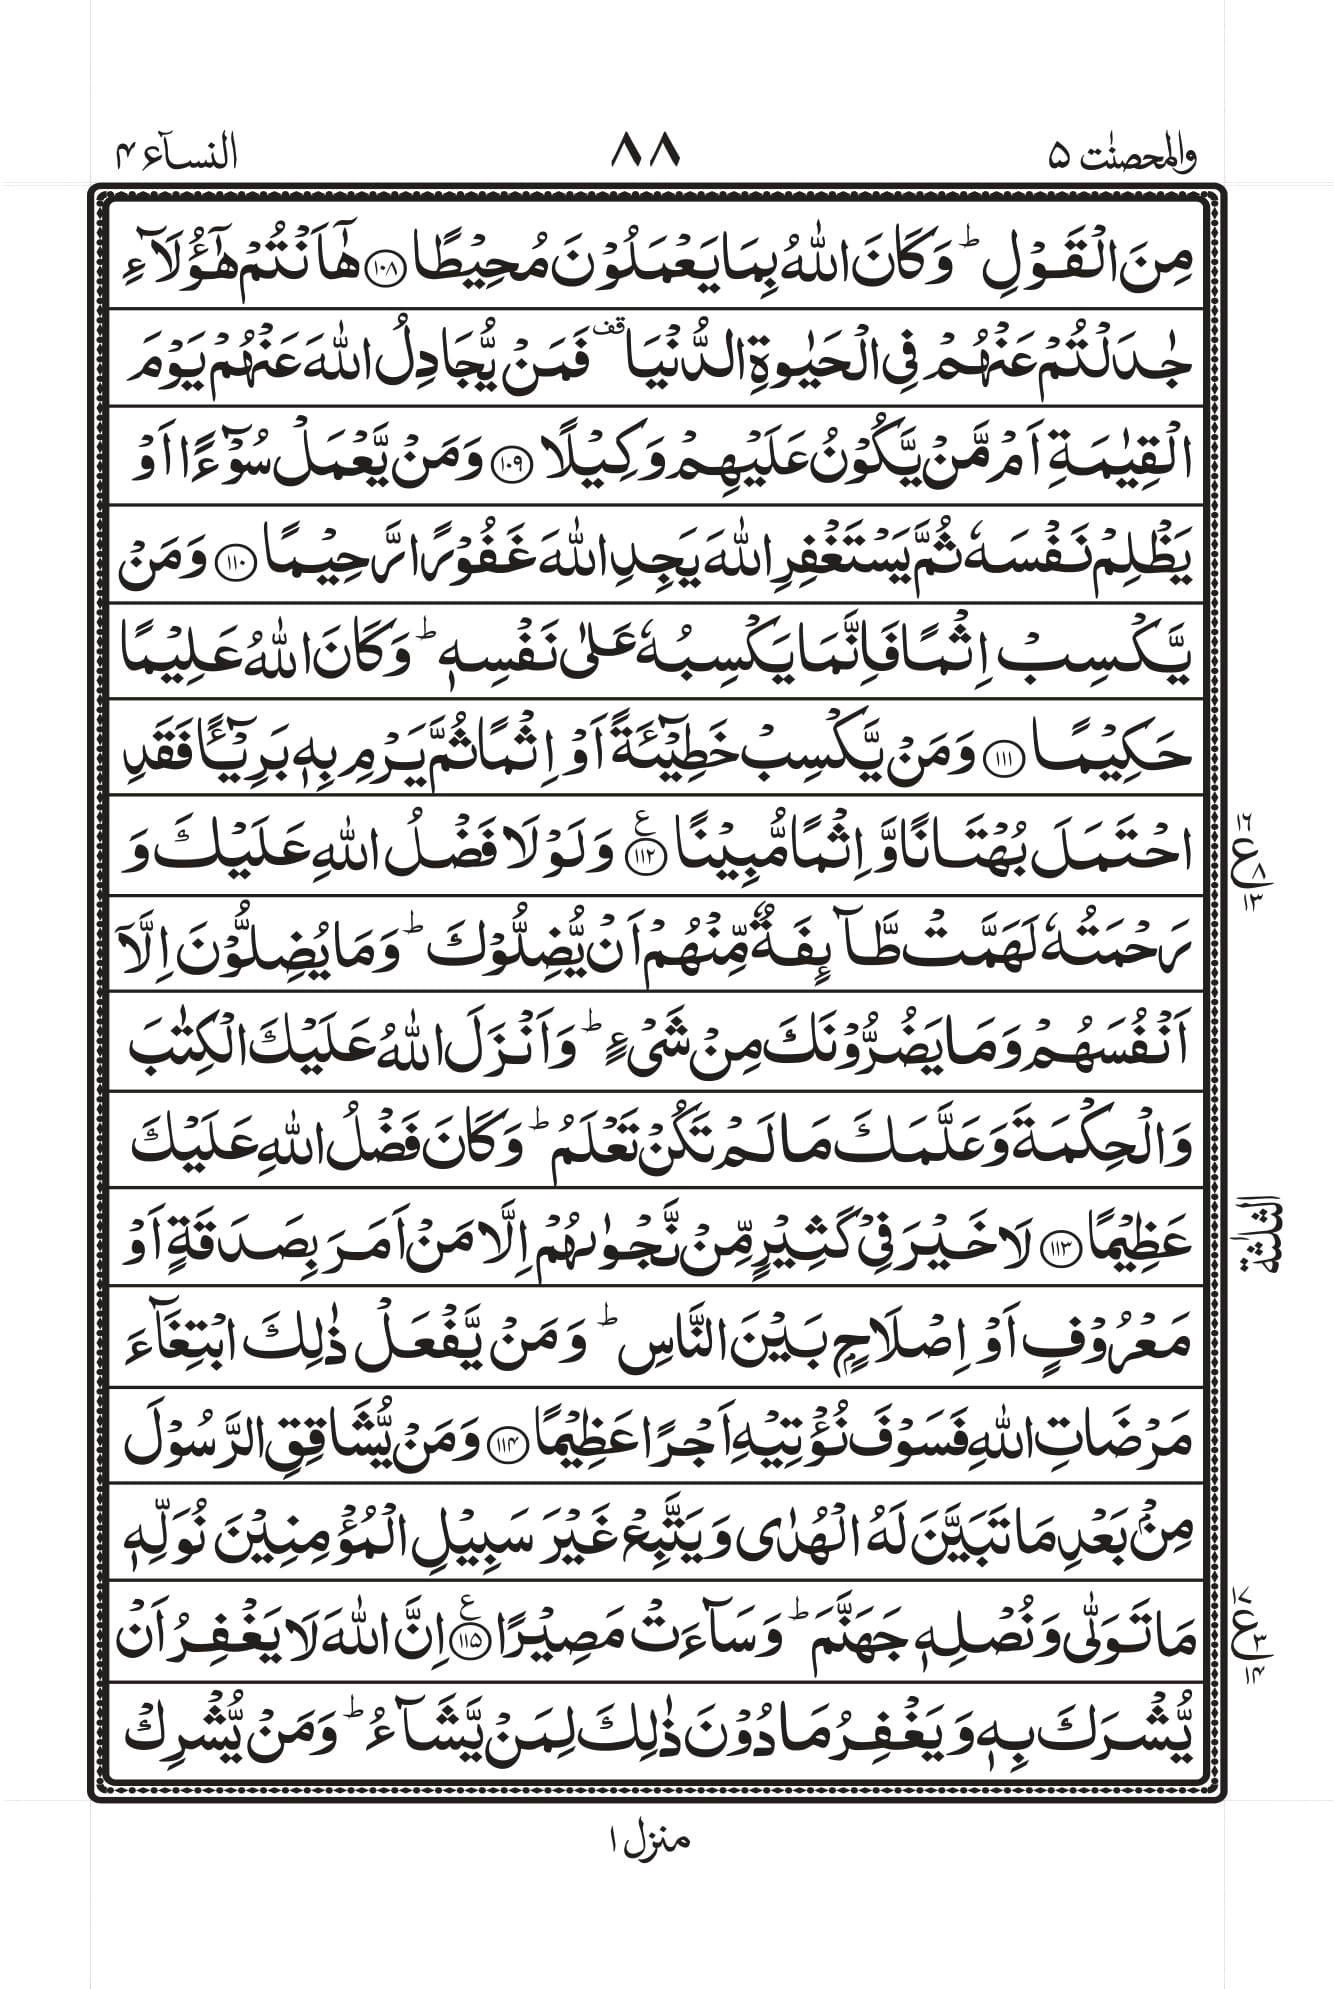 والمحصنٰت ۵ ۸۸ النسآء ۴
مِنَ الۡقَوۡلِ ؕ وَكَانَ اللّٰهُ بِمَا يَعۡمَلُوۡنَ مُحِيۡطًا ﴿۱۰۸﴾ هٰۤاَنۡتُمۡ هٰٓؤُلَآءِ
جٰدَلۡتُمۡ عَنۡهُمۡ فِى الۡحَيٰوةِ الدُّنۡيَا ࣞ فَمَنۡ يُّجَادِلُ اللّٰهَ عَنۡهُمۡ يَوۡمَ
الۡقِيٰمَةِ اَمۡ مَّنۡ يَّكُوۡنُ عَلَيۡهِمۡ وَكِيۡلًا ﴿۱۰۹﴾ وَمَنۡ يَّعۡمَلۡ سُوۡٓءًا اَوۡ
يَظۡلِمۡ نَفۡسَهٗ ثُمَّ يَسۡتَغۡفِرِ اللّٰهَ يَجِدِ اللّٰهَ غَفُوۡرًا رَّحِيۡمًا ﴿۱۱۰﴾ وَمَنۡ
يَّكۡسِبۡ اِثۡمًا فَاِنَّمَا يَكۡسِبُهٗ عَلٰى نَفۡسِهٖ ؕ وَكَانَ اللّٰهُ عَلِيۡمًا
حَكِيۡمًا ﴿۱۱۱﴾ وَمَنۡ يَّكۡسِبۡ خَطِيۡٓـئَةً اَوۡ اِثۡمًا ثُمَّ يَرۡمِ بِهٖ بَرِيۡٓـئًا فَقَدِ
احۡتَمَلَ بُهۡتَانًا وَّاِثۡمًا مُّبِيۡنًا ﴿۱۱۲﴾ ع وَلَوۡلَا فَضۡلُ اللّٰهِ عَلَيۡكَ وَ
۱۶ ع ۸ ۱۳
رَحۡمَتُهٗ لَهَمَّتۡ طَّآٮِٕفَةٌ مِّنۡهُمۡ اَنۡ يُّضِلُّوۡكَ ؕ وَمَا يُضِلُّوۡنَ اِلَّاۤ
اَنۡفُسَهُمۡ وَمَا يَضُرُّوۡنَكَ مِنۡ شَىۡءٍ ؕ وَاَنۡزَلَ اللّٰهُ عَلَيۡكَ الۡكِتٰبَ
وَالۡحِكۡمَةَ وَعَلَّمَكَ مَا لَمۡ تَكُنۡ تَعۡلَمُ ؕ وَكَانَ فَضۡلُ اللّٰهِ عَلَيۡكَ
عَظِيۡمًا ﴿۱۱۳﴾ لَا خَيۡرَ فِىۡ كَثِيۡرٍ مِّنۡ نَّجۡوٰٮهُمۡ اِلَّا مَنۡ اَمَرَ بِصَدَقَةٍ اَوۡ
الثلثة
مَعۡرُوۡفٍ اَوۡ اِصۡلَاحٍۢ بَيۡنَ النَّاسِ ؕ وَمَنۡ يَّفۡعَلۡ ذٰلِكَ ابۡتِغَآءَ
مَرۡضَاتِ اللّٰهِ فَسَوۡفَ نُؤۡتِيۡهِ اَجۡرًا عَظِيۡمًا ﴿۱۱۴﴾ وَمَنۡ يُّشَاقِقِ الرَّسُوۡلَ
مِنۡۢ بَعۡدِ مَا تَبَيَّنَ لَهُ الۡهُدٰى وَيَتَّبِعۡ غَيۡرَ سَبِيۡلِ الۡمُؤۡمِنِيۡنَ نُوَلِّهٖ
مَا تَوَلّٰى وَنُصۡلِهٖ جَهَنَّمَ ؕ وَسَآءَتۡ مَصِيۡرًا ﴿۱۱۵﴾ ع اِنَّ اللّٰهَ لَا يَغۡفِرُ اَنۡ
۱۷ ع ۳ ۱۴
يُّشۡرَكَ بِهٖ وَيَغۡفِرُ مَا دُوۡنَ ذٰلِكَ لِمَنۡ يَّشَآءُ ؕ وَمَنۡ يُّشۡرِكۡ
منزل ۱